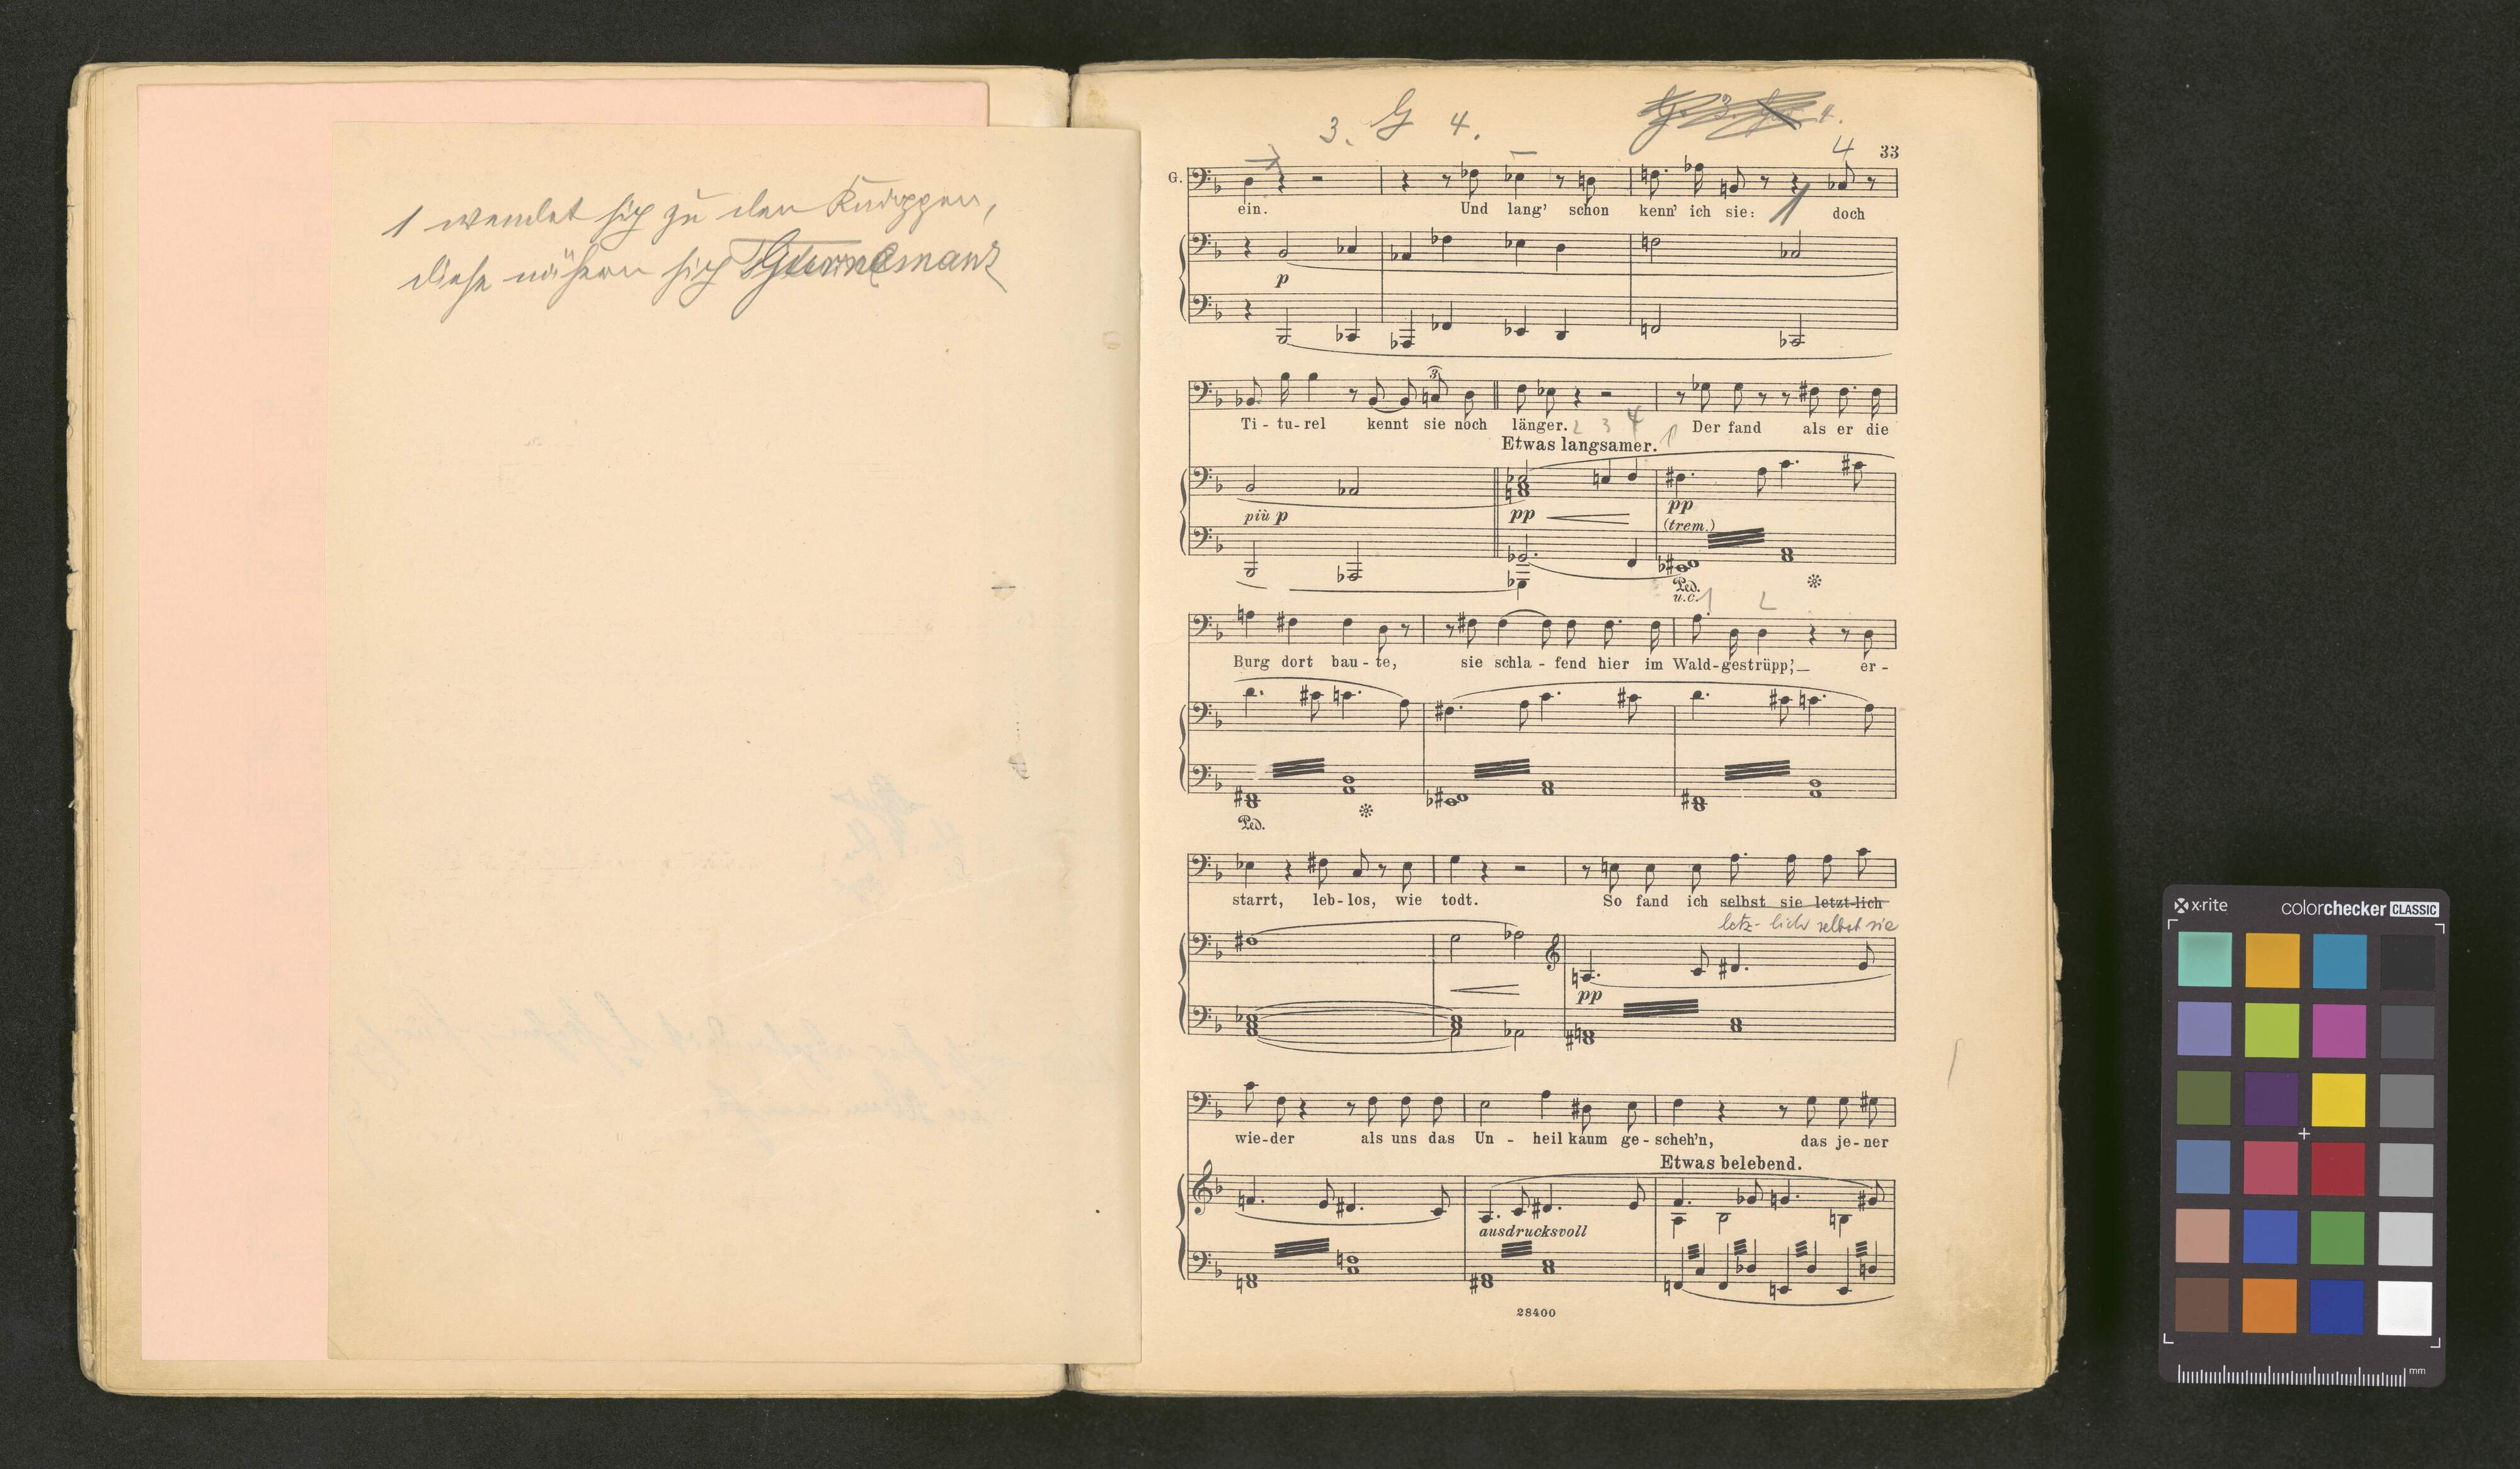 1 wendet sich zu den Knappen,
diese nähern sich Gurnemanz
3. G 4.
4 33
G.
ein. Und lang' schon kenn' ich sie: doch
p
3
Ti - tu - rel kennt sie noch länger. 2 3 4 Der fand als er die
Etwas langsamer. 1
più p pp pp
(trem.)
Ped.
u.c. 1 2
Burg dort bau - te, sie schla - fend hier im Wald-gestrüpp;'— er -
Ped.
starrt, leb - los, wie todt. So fand ich selbst sie letzt-lich
letz- lich selbst sie
pp
wie-der als uns das Un - heil kaum ge - scheh'n, das je - ner
Etwas belebend.
ausdrucksvoll
28400
x·rite colorchecker CLASSIC
mm